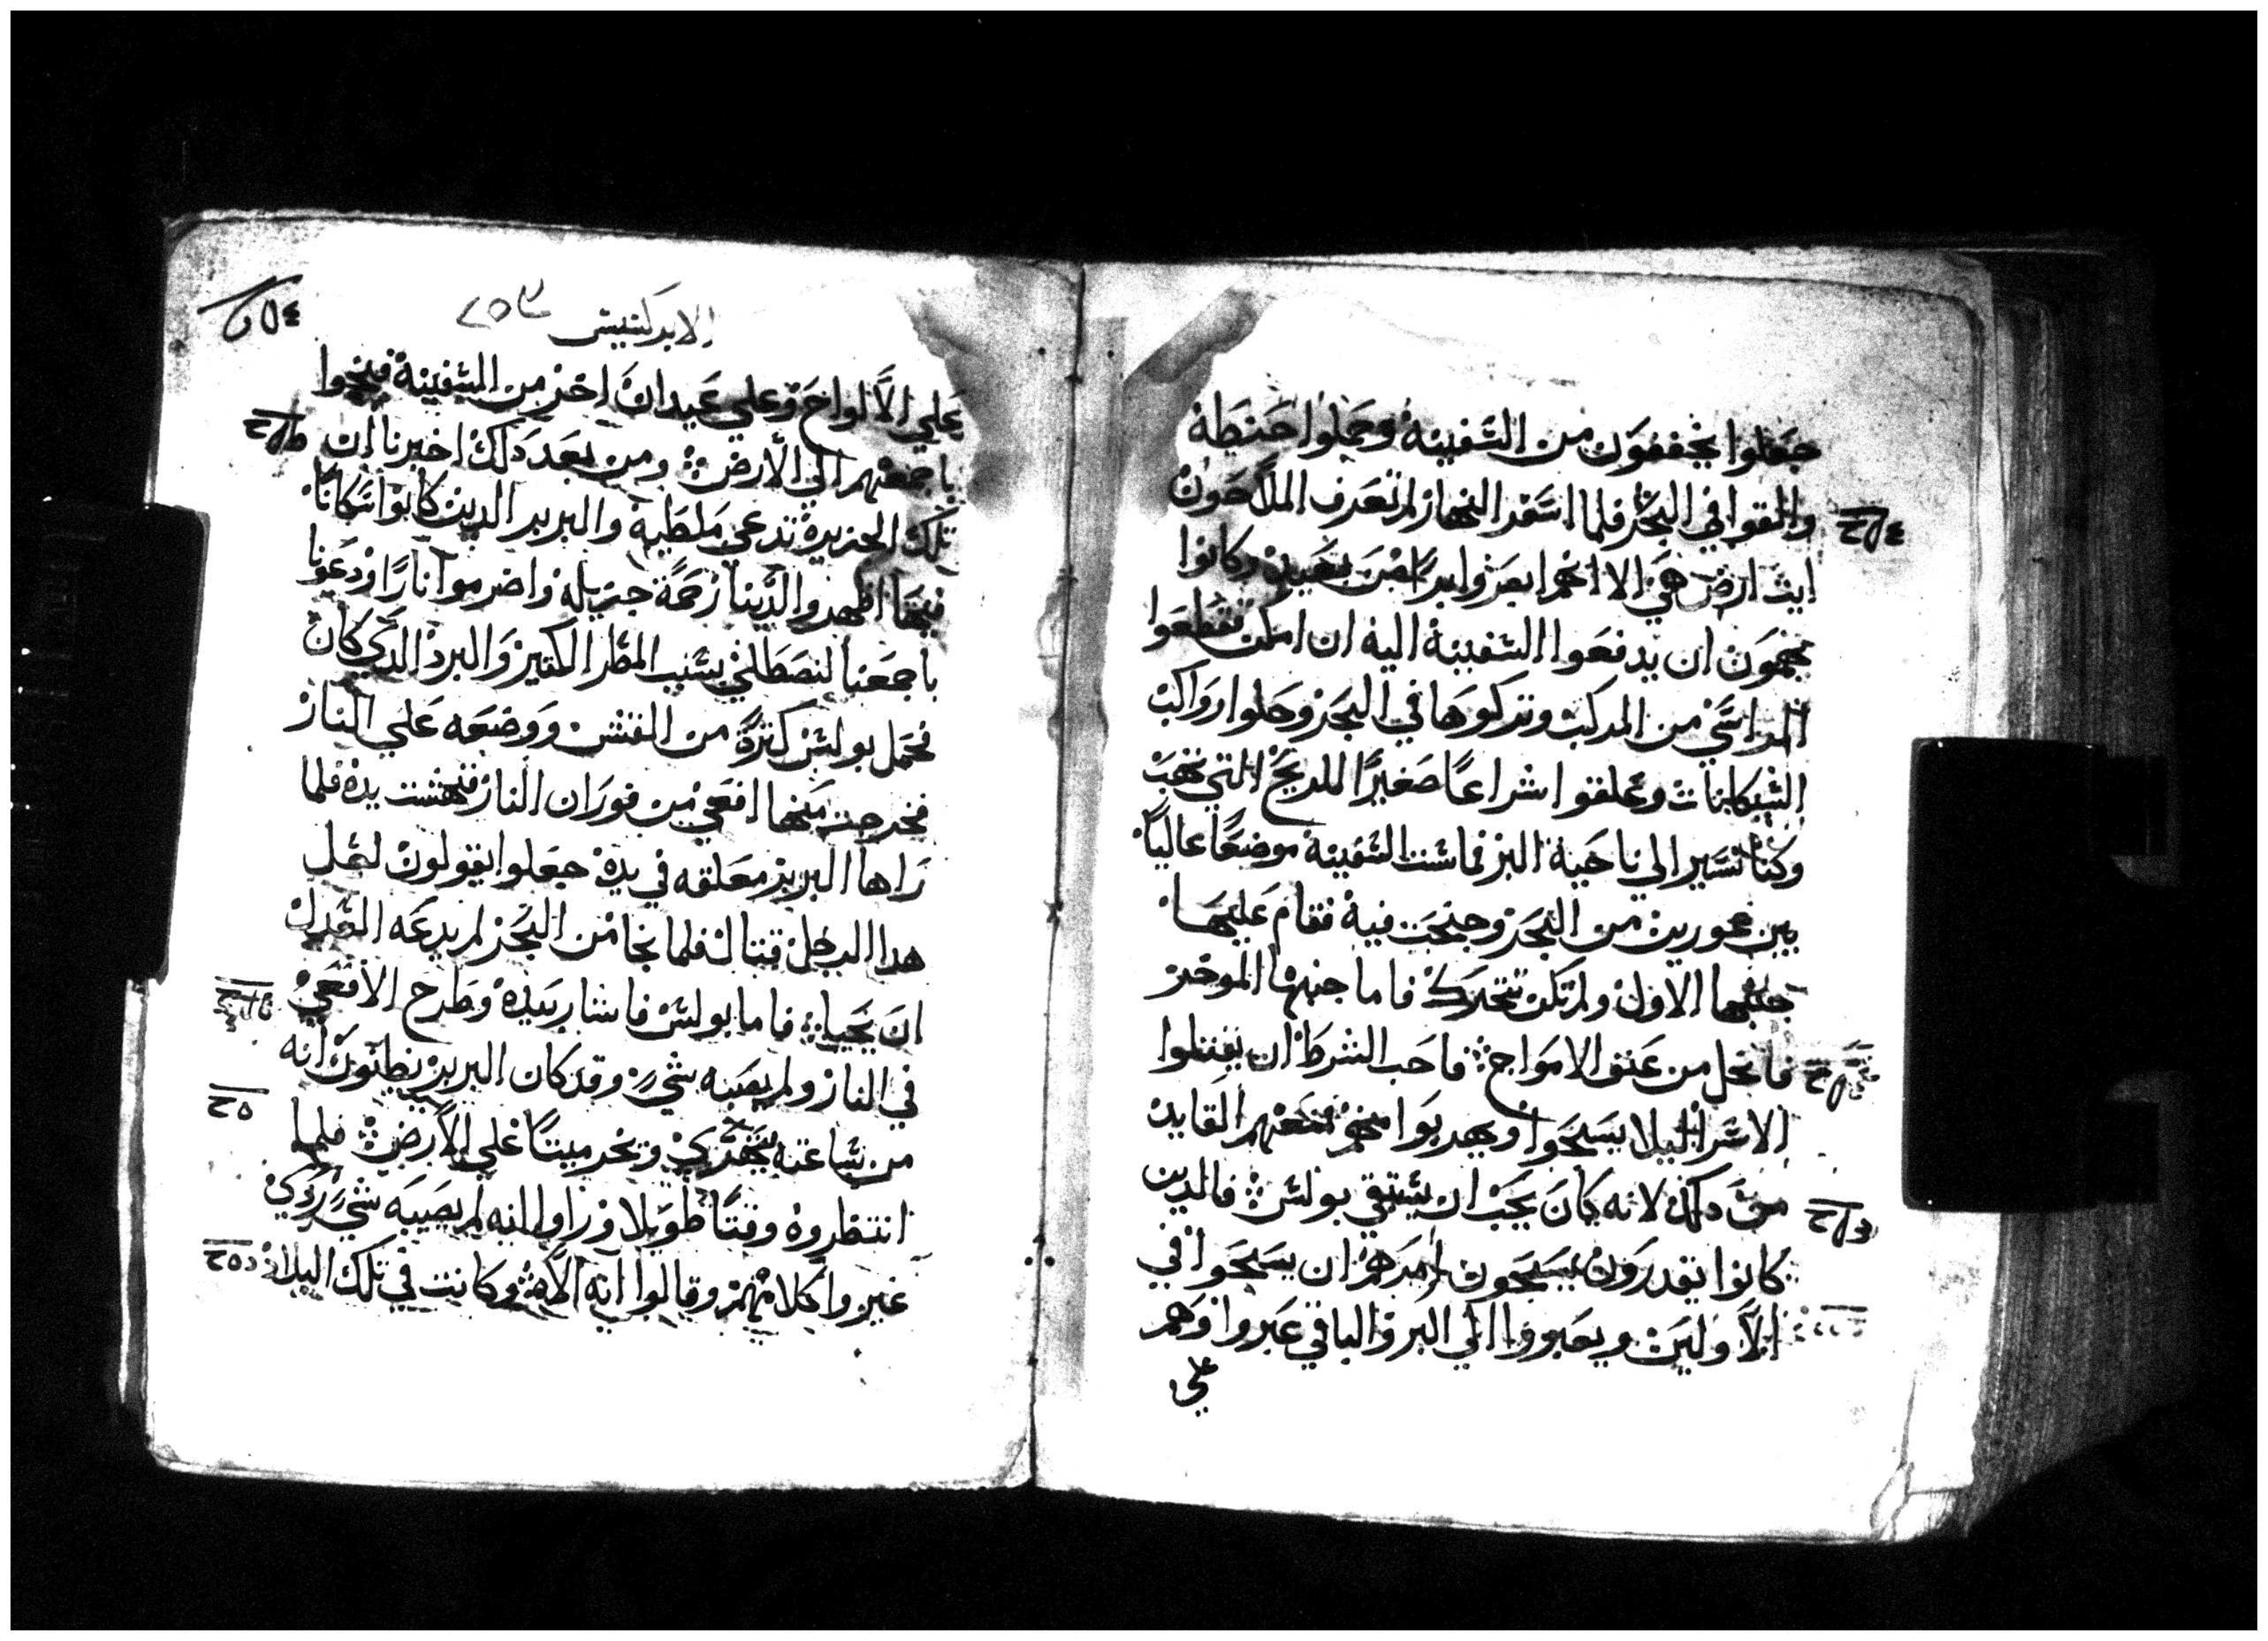 جعلوا يخففون من السفينة وحملوا حنطة
والقوا في البحر فلما اسفر النهار لم تعرف الملاحون
ايت ارض هي الا انهم ابصروا براً من بعيد وكانوا
يهمون ان يدفعوا السفينة اليه ان امكن فقطعوا
المراسي من المركب وتركوها في البحر وحلوا رواكب
السكانات وعلقوا شراعًا صغيرًا للريح التي تهب
وكنا نسير الي ناحية البر فماست السفينة موضعًا عاليًا
بين غورين من البحر وجنحت فيه فقام عليها
جنبها الاول ولم تكن تتحرك فاما جنبها الموخر
فانحل من عنق الامواج فاحب الشرط ان يقتلوا
الاسرا ليلا يسبحوا ويهربوا منهم فمنعهم القايد
من دلك لانه كان يحب ان يستبقي بولس فالدين
كانوا يقدرون يسبحون امرهم ان يسبحوا في
الاولين ويعبووا الي البر والباقي عبروا وهم
علي
الابركسيس ٢٥٣
علي الالواح وعلي عيدان اخر من السفينة فنجوا
باجمعهم الي الارض ومن بعد دلك اخبرنا ان
تلك الجزيرة تدعي ملطية والبربر الدين كانوا سكانًا
فيها اظهروا الينا رحمة جزيلة واضرموا نارًا ودعونا
باجمعنا لنصطلي بسبب المطر الكتير والبرد الدي كان
فحمل بولس كترة من القش ووضعه علي النار
فخرجت منها افعي من فوران النار فنهشت يده فلما
راها البربر معلقه في يده جعلوا يقولون لعل
هدا الرجل قتال فلما نجا من البحر لم يدعه العدل
ان يحيا فاما بولس فاشار بيده وطرح الافعي
في النار ولم يصبه شي وقد كان البربر يظنون انه
من ساعته يتهري ويخر ميتًا علي الارض فلما
انتظروه وقتًا طويلا وراوا انه لم يصيبه شي ردي
غيروا كلامهم وقالوا انه الاه وكانت في تلك البلاد